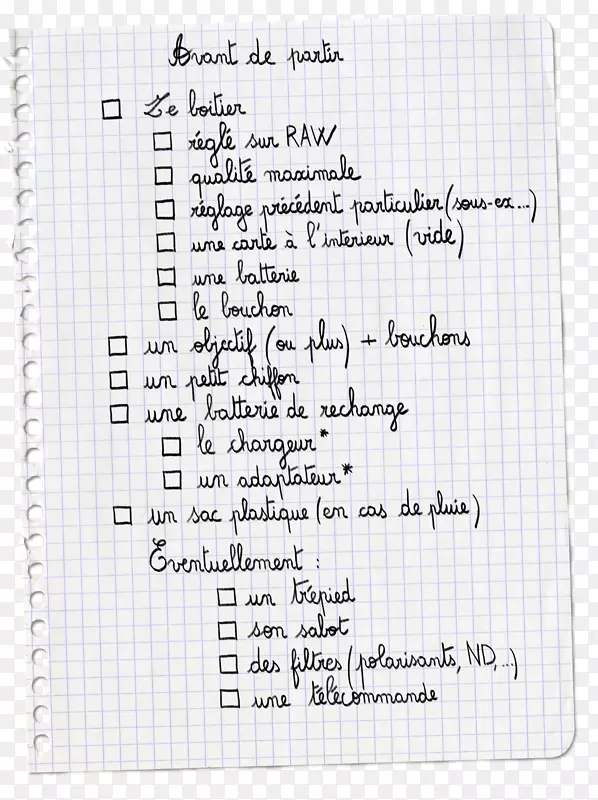 Avant de partir
Le boitier
réglé sur RAW
qualité maximale
réglage précédent particulier (sous-ex...)
une carte à l'intérieur (vide)
une batterie
le bouchon
un objectif (ou plus) + bouchons
un petit chiffon
une batterie de rechange
le chargeur*
un adaptateur*
un sac plastique (en cas de pluie)
Eventuellement :
un trépied
son sabot
des filtres (polarisants, ND,...)
une télécommande